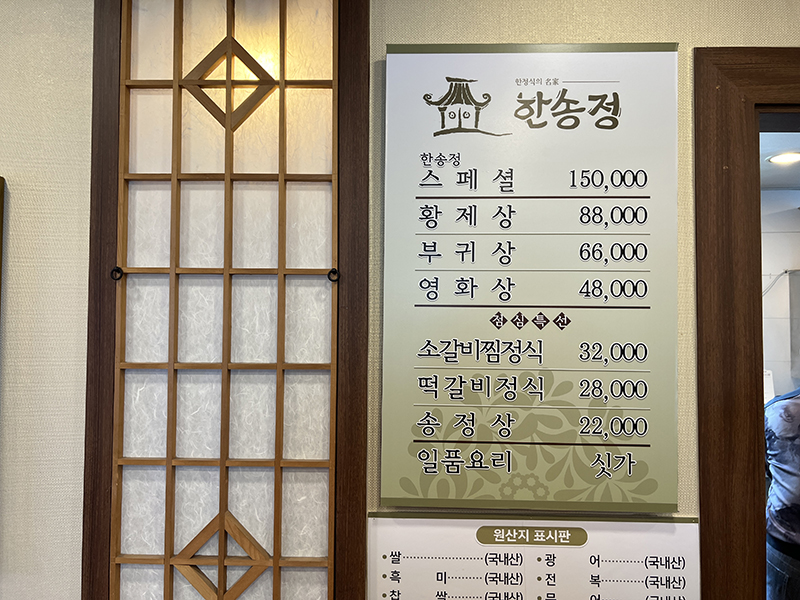 한정식의 名家
한송정
한송정
스페셜 150,000
황제상 88,000
부귀상 66,000
영화상 48,000
점심특선
소갈비찜정식 32,000
떡갈비정식 28,000
송정상 22,000
일품요리 싯가
원산지 표시판
• 쌀 ··············· (국내산) • 광 어 ·········· (국내산)
• 흑 미 ·········· (국내산) • 전 복 ·········· (국내산)
• 찹 쌀 ·········· (국내산) • 문 어 ·········· (국내산)